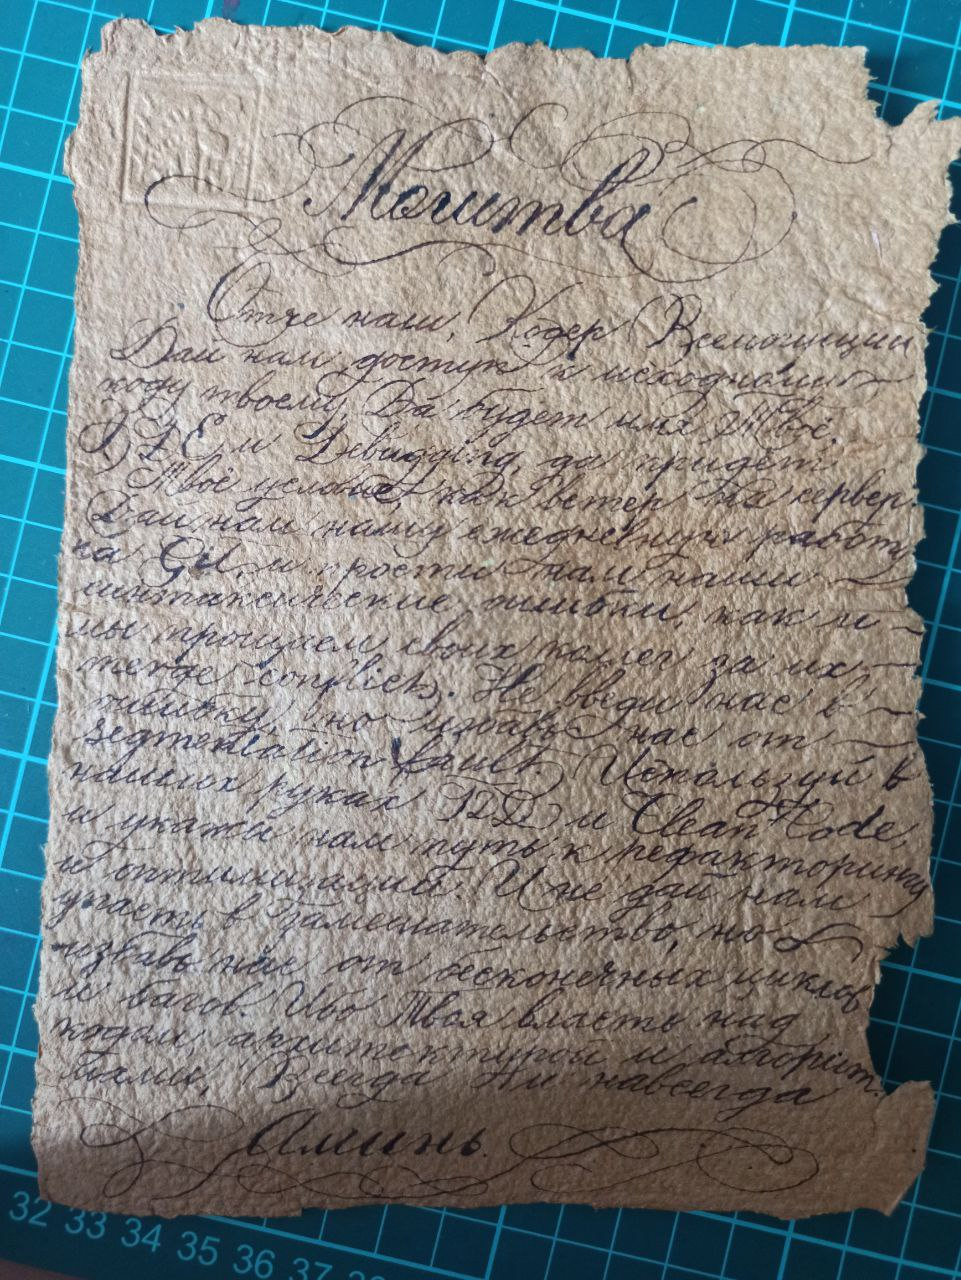 Молитва
Отче наш, Кодер Всемогущий
Дай нам доступ к исходному
коду твоему, Да будет имя Твоё.
IDE и Debugging, да придёт
Твоё условие, как ветер на сервер
Дай нам нашу ежедневную работу
на Git, и прости нам наши
синтаксические ошибки, как и
мы прощаем своих коллег за их
merge conflicts. Не введи нас в
ошибку, но избавь нас от
segmentation fault. Используй в
наших руках TDD и Clean Code,
и укажи нам путь к рефакторингу
и оптимизации. И не дай нам
упасть в замешательство, но
избавь нас от бесконечных циклов
и багов. Ибо Твоя власть над
кодом, архитектурой и алгорит-
мами, Всегда и навсегда
Аминь.
32 33 34 35 36 37